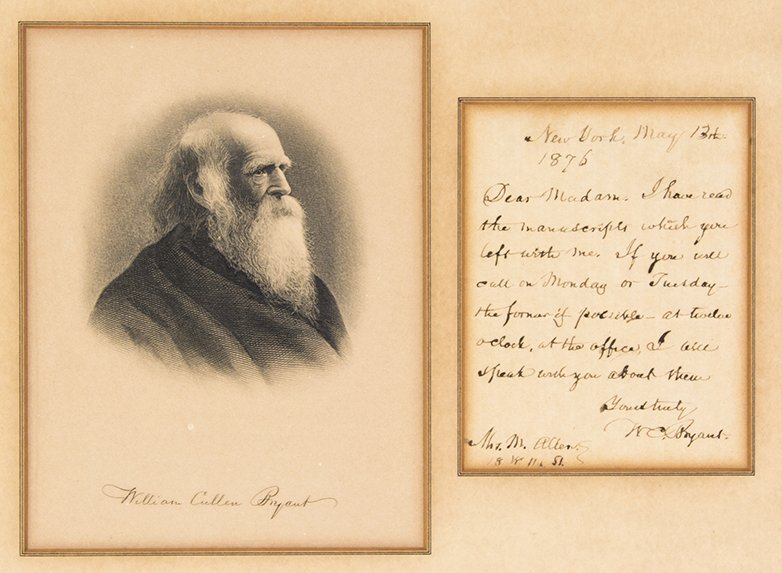 William Cullen Bryant
New York, May 13th.
1876
Dear Madam. I have read
the manuscripts which you
left with me. If you will
call on Monday or Tuesday –
the former if possible – at twelve
o'clock, at the office, I will
speak with you about them
Yours truly
W C. Bryant.
Mrs. M. Allen.
18 W 11th St.